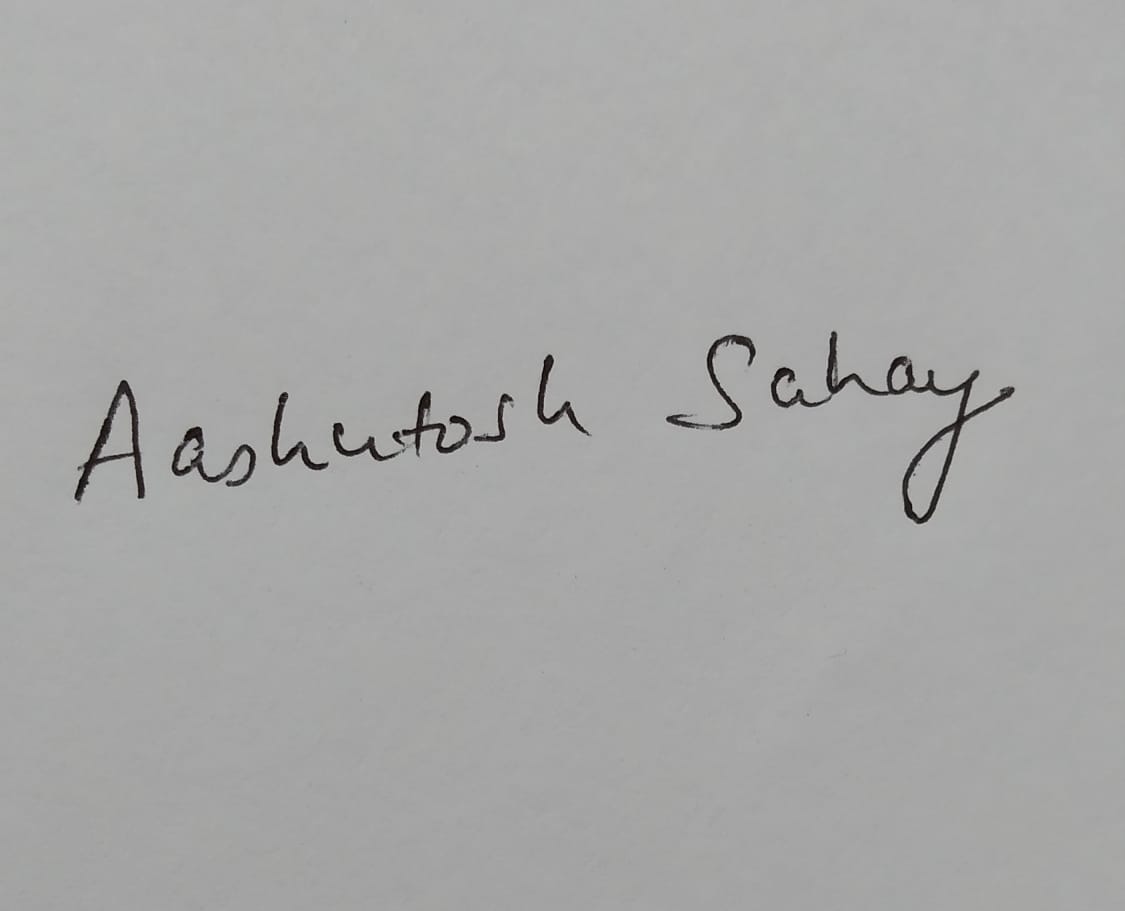 Aashutosh Sahay